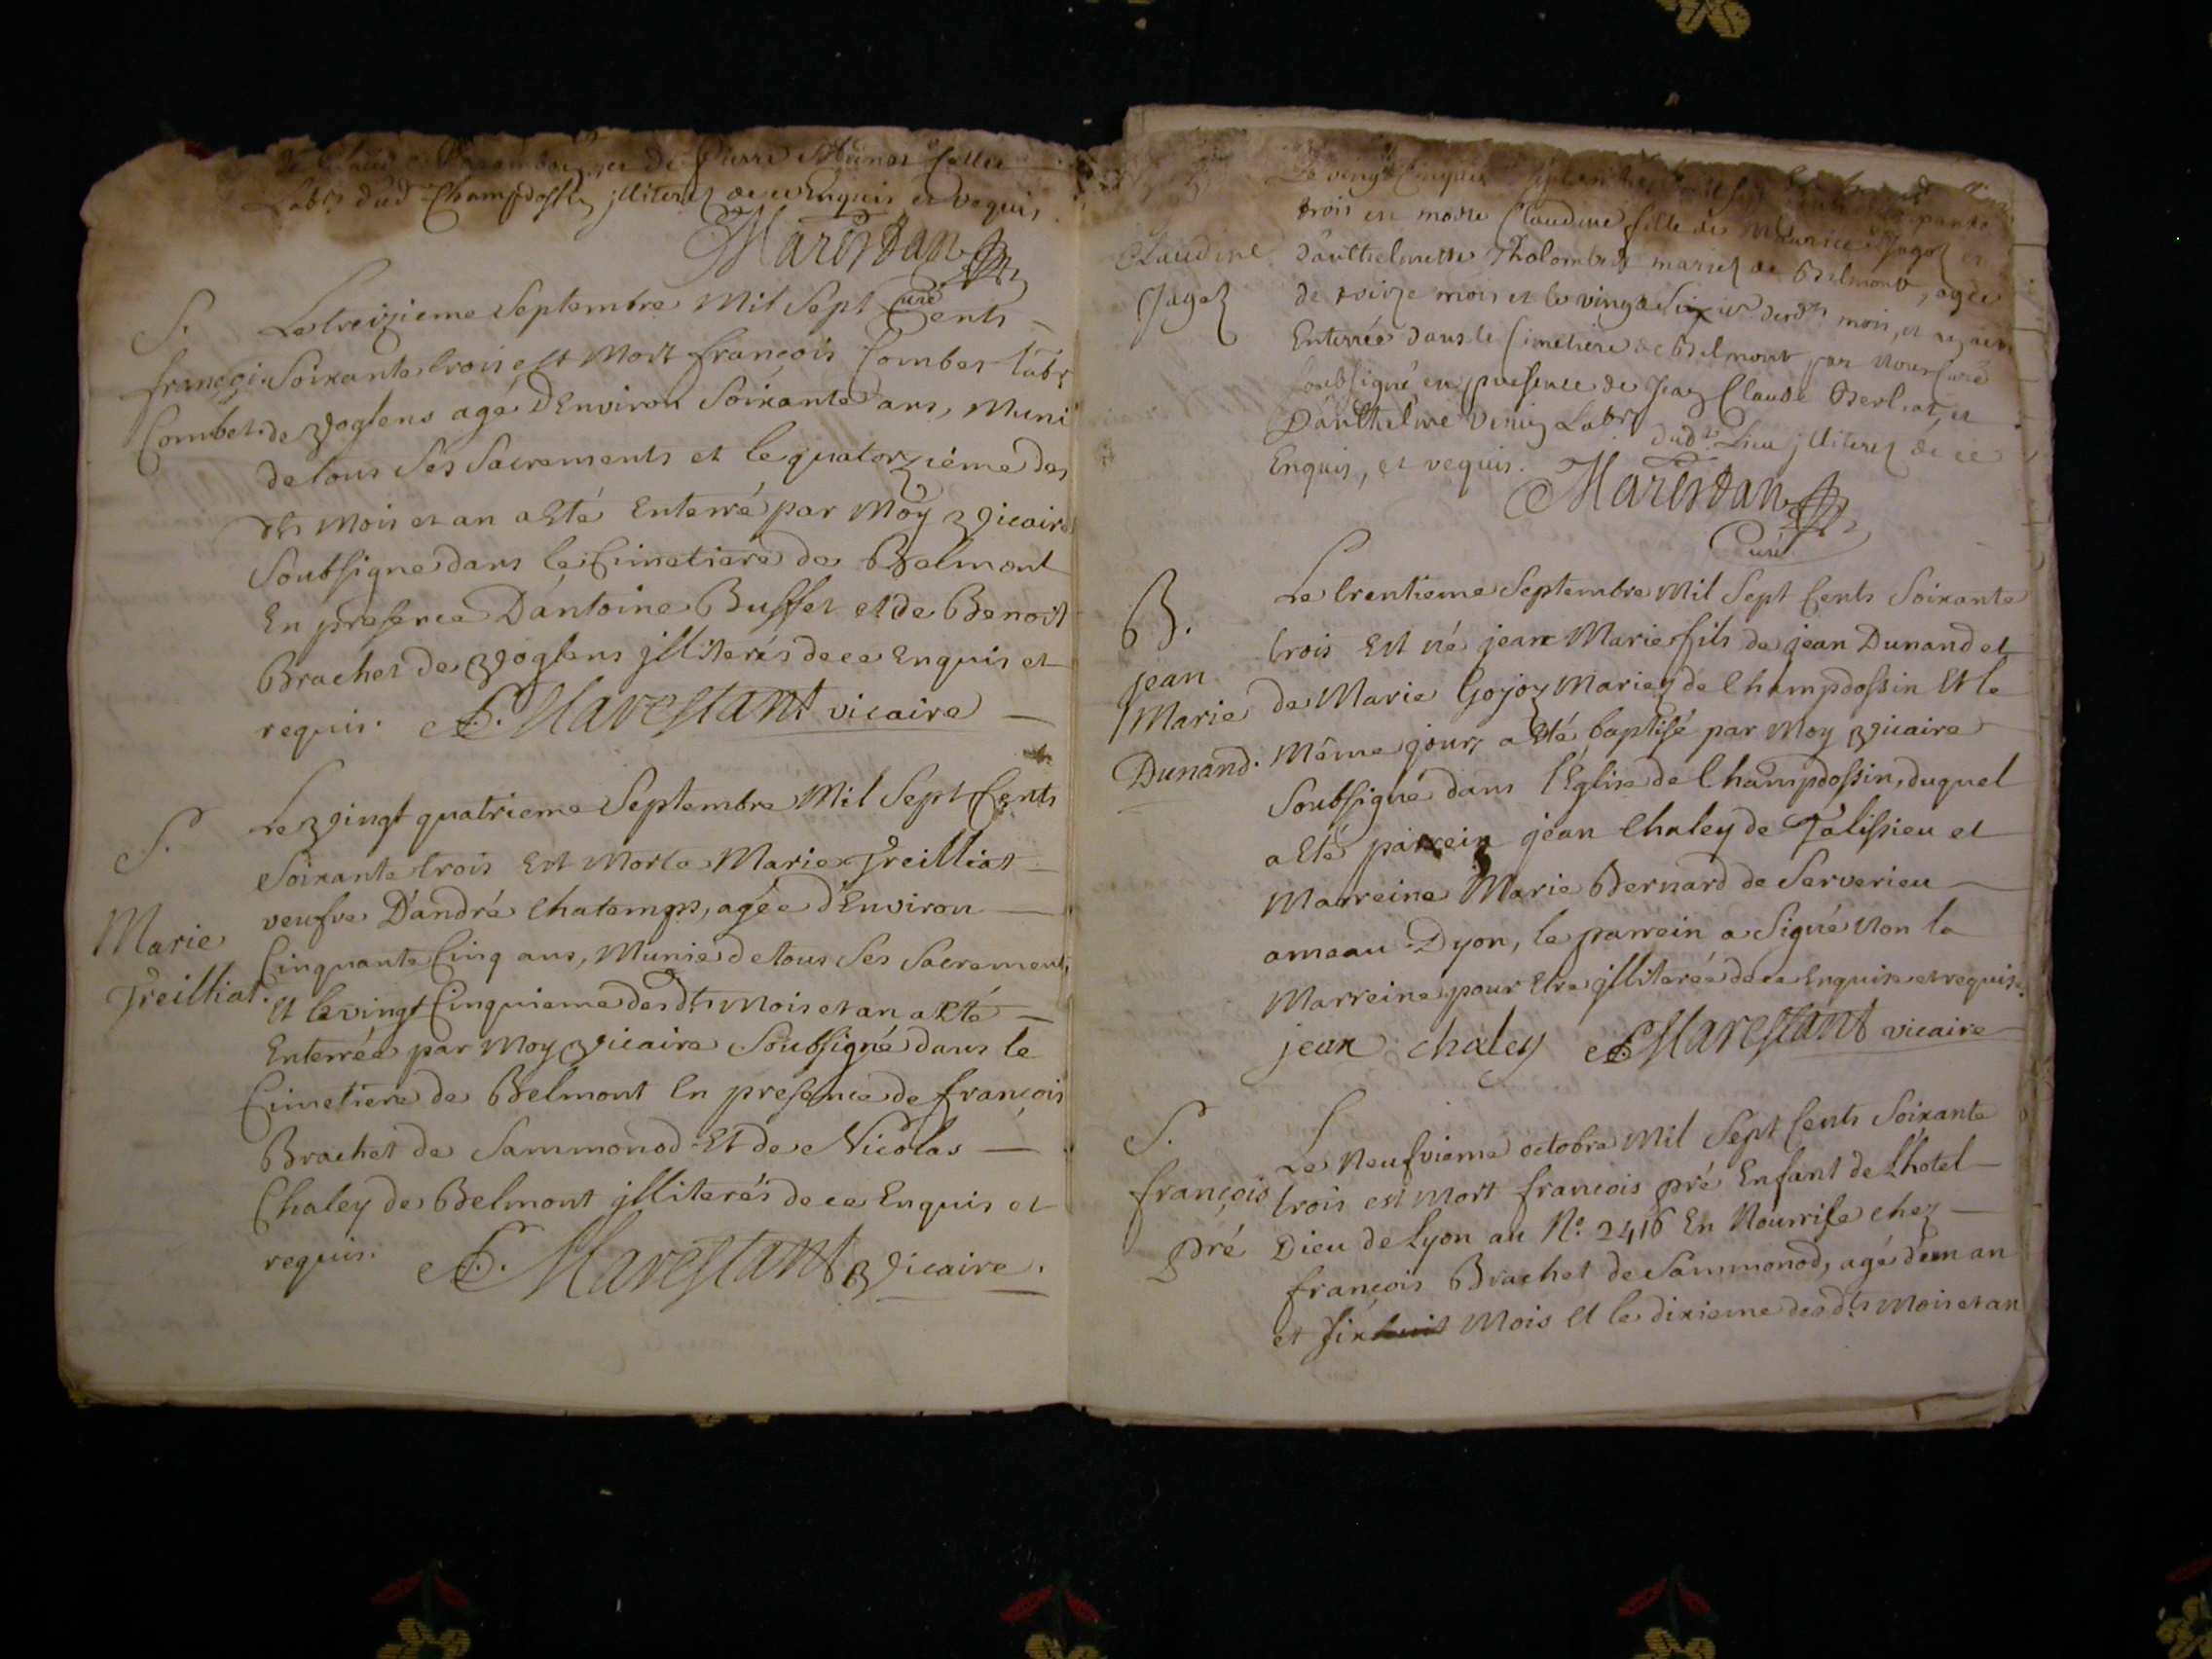 de Pierre
Labrs dud Champdossin jlliterez de ce Enquis et requis
Marestan
Curé
S.
françois
Combet.
Le treizieme Septembre Mil Sept Cents
Soixante trois est Mort françois Combet labr
de Voglens agé d'Environ Soixante ans, Muni
de tous Ses Sacrements et le quatorzième des
dts Mois et an a Eté Enterré par Moy Vicaire
Soubsigné dans le Cimetiere de Belmont
En presence D'antoine Buffet et de Benoit
Brachet de Voglens jlliterés de ce Enquis et
requis. Marestant vicaire
S.
Marie
Treilliat.
Le Vingt quatrieme Septembre Mil Sept Cents
Soixante trois Est Morte Marie Treilliat
veufve D'andré Chatemps, agée d'Environ
Cinquante Cinq ans, Munie de tous Ses Sacrements
Et le vingt Cinquieme des dts Mois et an a Eté
Enterrée par Moy Vicaire Soubsigné dans le
Cimetiere de Belmont En presence de françois
Brachet de Sammonod Et de Nicolas
Chaley de Belmont jlliterés de ce Enquis et
requis. Marestant Vicaire.
Claudine
Jagot
Le vingt Cinquie
trois est morte Claudine fille de Jagot et
D'anthelmette mariez de Belmont, agée
de treize mois et le vingt Sixie desdts mois, et
Enterrée dans le Cimetiere de Belmont par Nous Curé
Soubsigné en presence de Jean Claude Berliat, et
D'anthelme Labrs dudt Lieu jlliterez de ce
Enquis, et requis. Marestan
Curé
B.
jean
Marie
Dunand.
Le trentieme Septembre Mil Sept Cents Soixante
trois Est né jean Marie fils de jean Dunand et
de Marie Gojoz Mariez de Champdossin Et le
Même jour a Eté baptisé par Moy Vicaire
Soubsigné dans l'Eglise de Champdossin, duquel
a Eté parrein jean Chaley de Talissieu et
Marreine Marie Bernard de Serverieu
ameau Dyon, le parrein a Signé Non la
Marreine pour Etre jlliterée de ce Enquise et requise.
jean chaley Marestant vicaire
S.
françois
pré
Le Neufvieme octobre Mil Sept Cents Soixante
trois est Mort francois pré Enfant de L'hotel
Dieu de Lyon au No. 2416 En Nourrise chez
françois Brachet de Sammonod, agé d'un an
et six huit Mois Et le dixieme des dts Mois et an